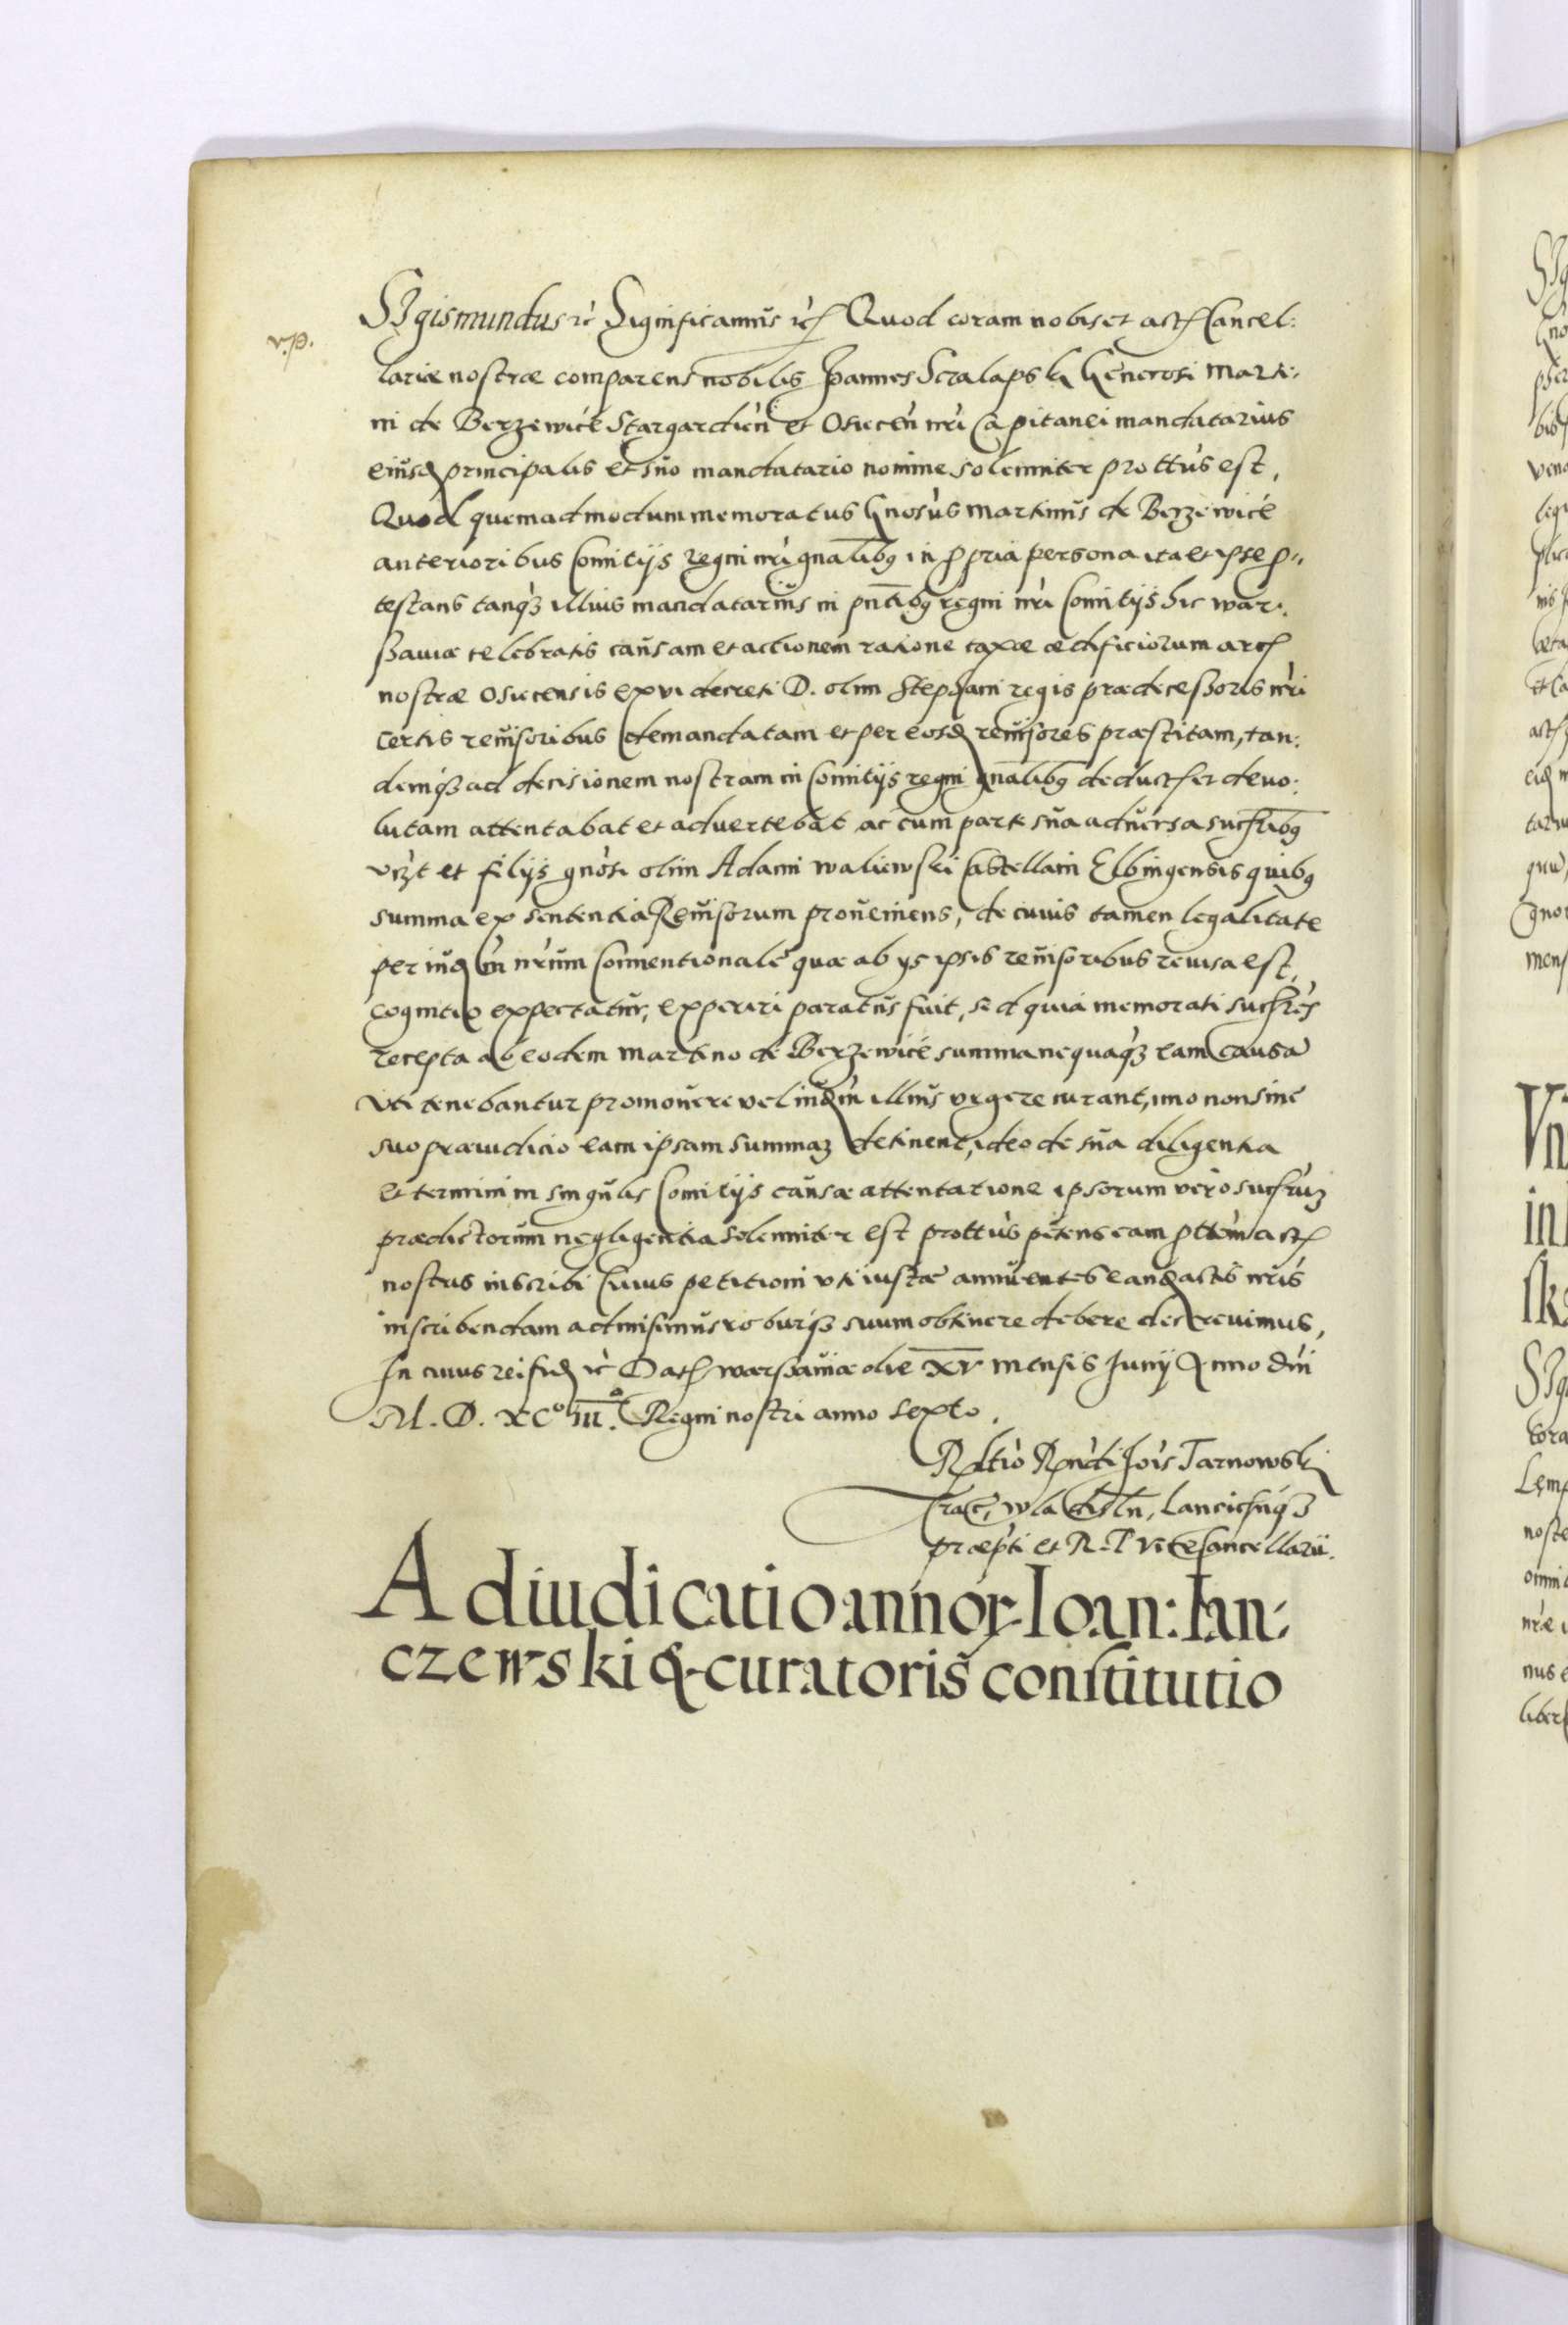 Sigismundus etc̀ Significamus etc̀ Quod coram nobis et actis Cancel:
v.p.
lariæ nostræ comparens nobilis Joannes Scralaps Generosi Marti:
ni de Berzewicé Stargardien̄ et Osiecen̄ nr̀i Capitanei mandatarius
eiusd principalis et suo mandatario nomine solemniter prottùs est,
Quod quemadmodum memoratus Gnosùs Martinus de Berzewicé
anterioribus Comitijs Regni nr̀i gnalibq in ppria persona ita et ipse p:
testans tanq̀ȝ illius mandatarius in pntibq regni nr̀i Comitijs hic War:
saviæ celebratis causam et actionem ratione taxæ ædificiorum arcis
nostræ Osiecensis ex vi decreti D. olim Stephani regis prædecessoris nr̀i
certis revisoribus demandatam et per eosd revisores præstitam, tan:
demq̀ȝ ad decisionem nostram in Comitijs regni gnalibq deduct et devo:
lutam attentabat et advertebat ac cum parte sua adversa sucrìbq
vizt et filijs gnòsi olim Adami Waliewski Castellani Elbingensis quibq
summa ex sententia Revisorum proveniens, de cuius tamen legalitate
per iud̀m nr̀um Conventionale quæ ab ys ipsis revisoribus revisa est,
cognitio expectatur, experiri paratus fuit, sed quia memorati sucr̀es
recepta ab eodem Martino de Berzewicé summa nequaq̀ȝ eam causa
uti tenebantur promovere vel iud̀m illius urgere curant, imo non sine
suo præiudicio eam ipsam summaȝ detinent, ideo de sua diligentia
et termini in singulis Comitijs causæ attentatione ipsorum vero sucr̀uȝ
prædictorum negligentia solemniter est prottùs petens eam pttèm actis
nostris inscribi Cuius petitioni uti iustæ annuentes eand actis nr̀is
inscribendam admisimus roburq̀ȝ suum obtinere debere decrevimus,
In cuius rei fid etc̀ Dat Warsaviæ die XV mensis Junij Anno Dn̄i
M. D. XCº III.º Regni nostri anno sexto.
Rltìo Rnd̀i Joìs Tarnowski
Crac, Wladisln, Lancicn̄q̀ȝ
præpti et R. P. Vice Cancellarii.
Adiudicatio annor Ioan: Ian:
czewski & curatoris constitutio